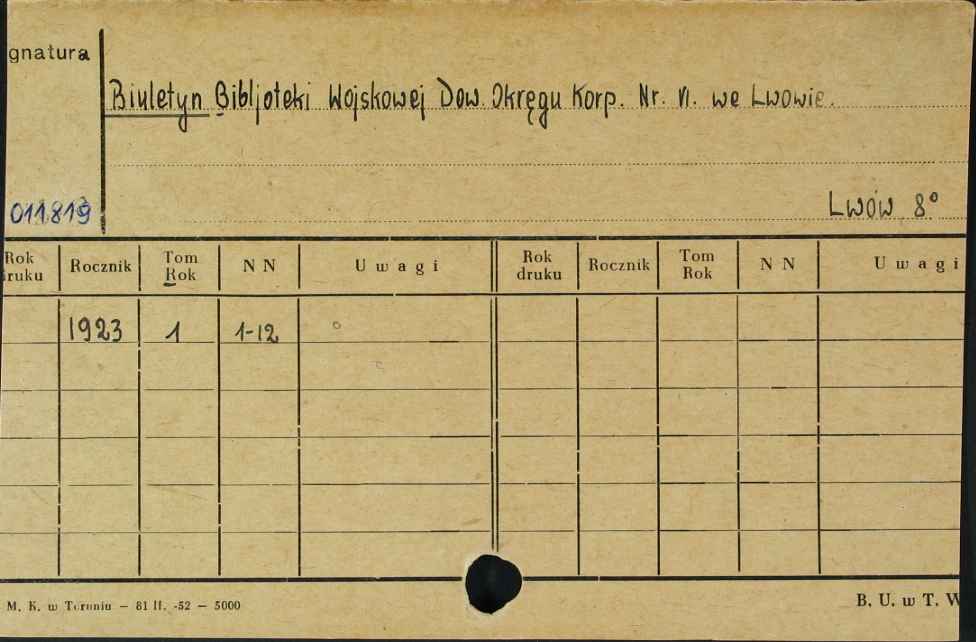 gnatura
Biuletyn Bibljoteki Wojskowej Dow. Okręgu Korp. Nr. VI. we Lwowie.
011819
Lwów 8°
Rok druku Rocznik Tom Rok N N Uwagi Rok druku Rocznik Tom Rok N N Uwagi
1923 1 1-12
M. K. w Toruniu — 81 II. -52 — 5000
B. U. w T. W